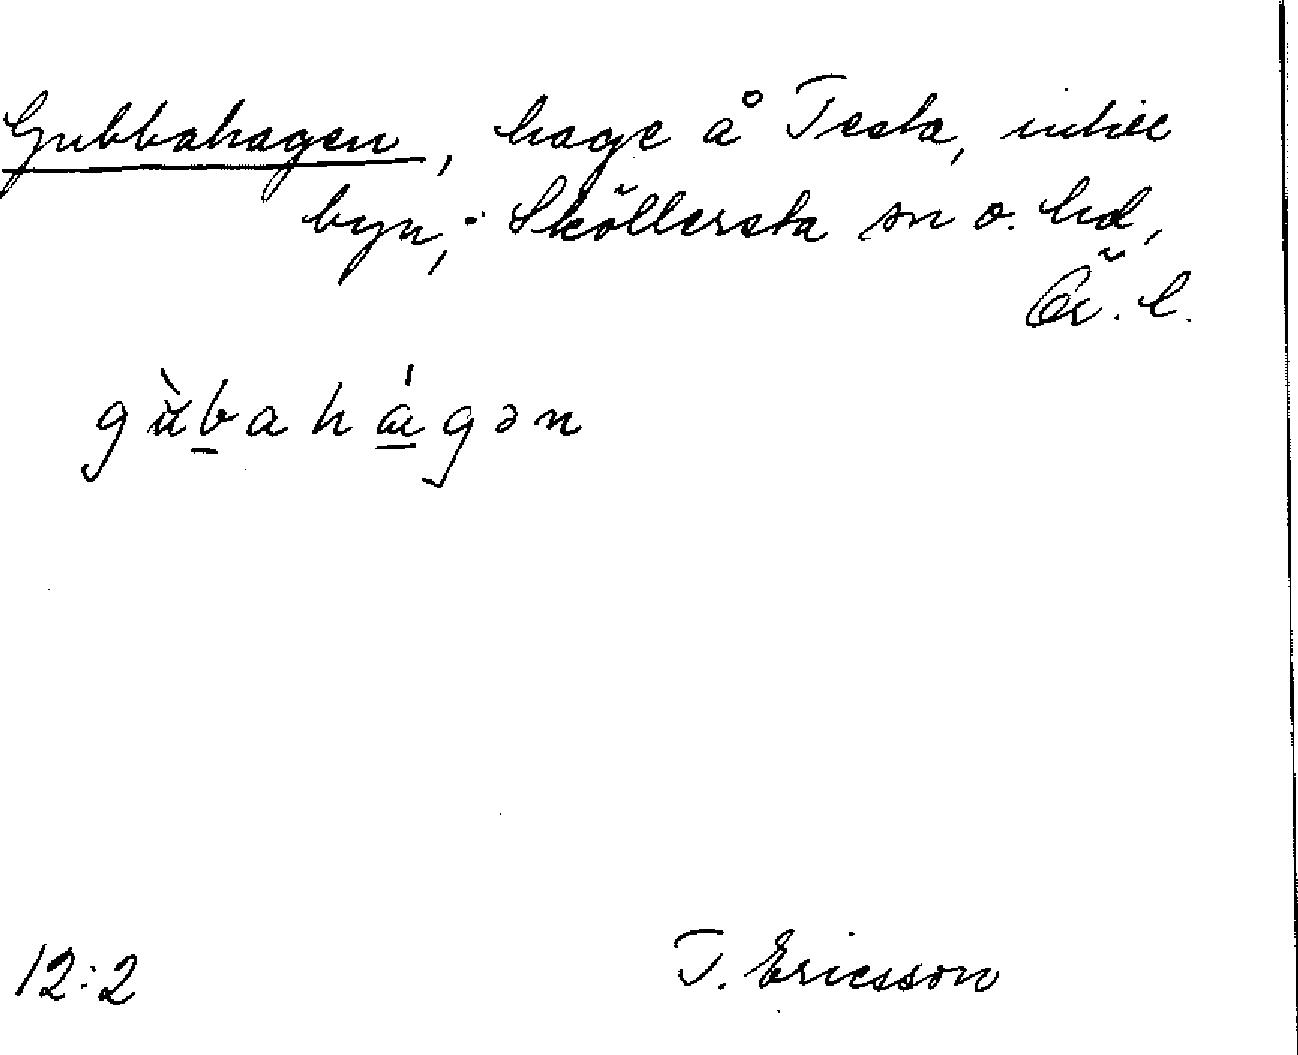 Gubbahagen, hage å Testa, intill
byn, i Sköllersta sn o. hd,
Ör. l.
gùbahágən
12:2
T. Ericsson